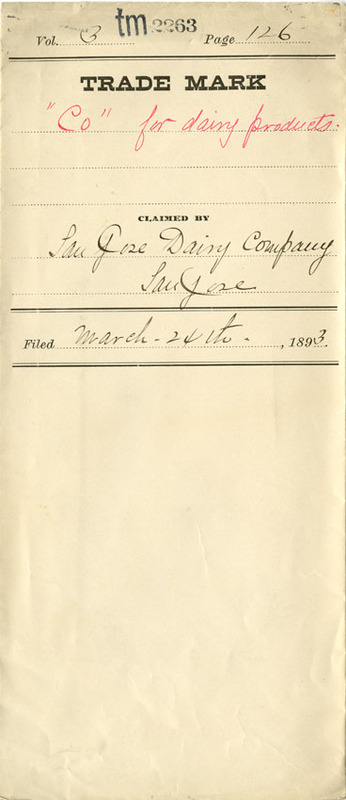 tm 2263
Vol. 3 Page 126
TRADE MARK
"Co" for dairy products.
CLAIMED BY
San Jose Dairy Company
San Jose
Filed March - 24th - , 1893.